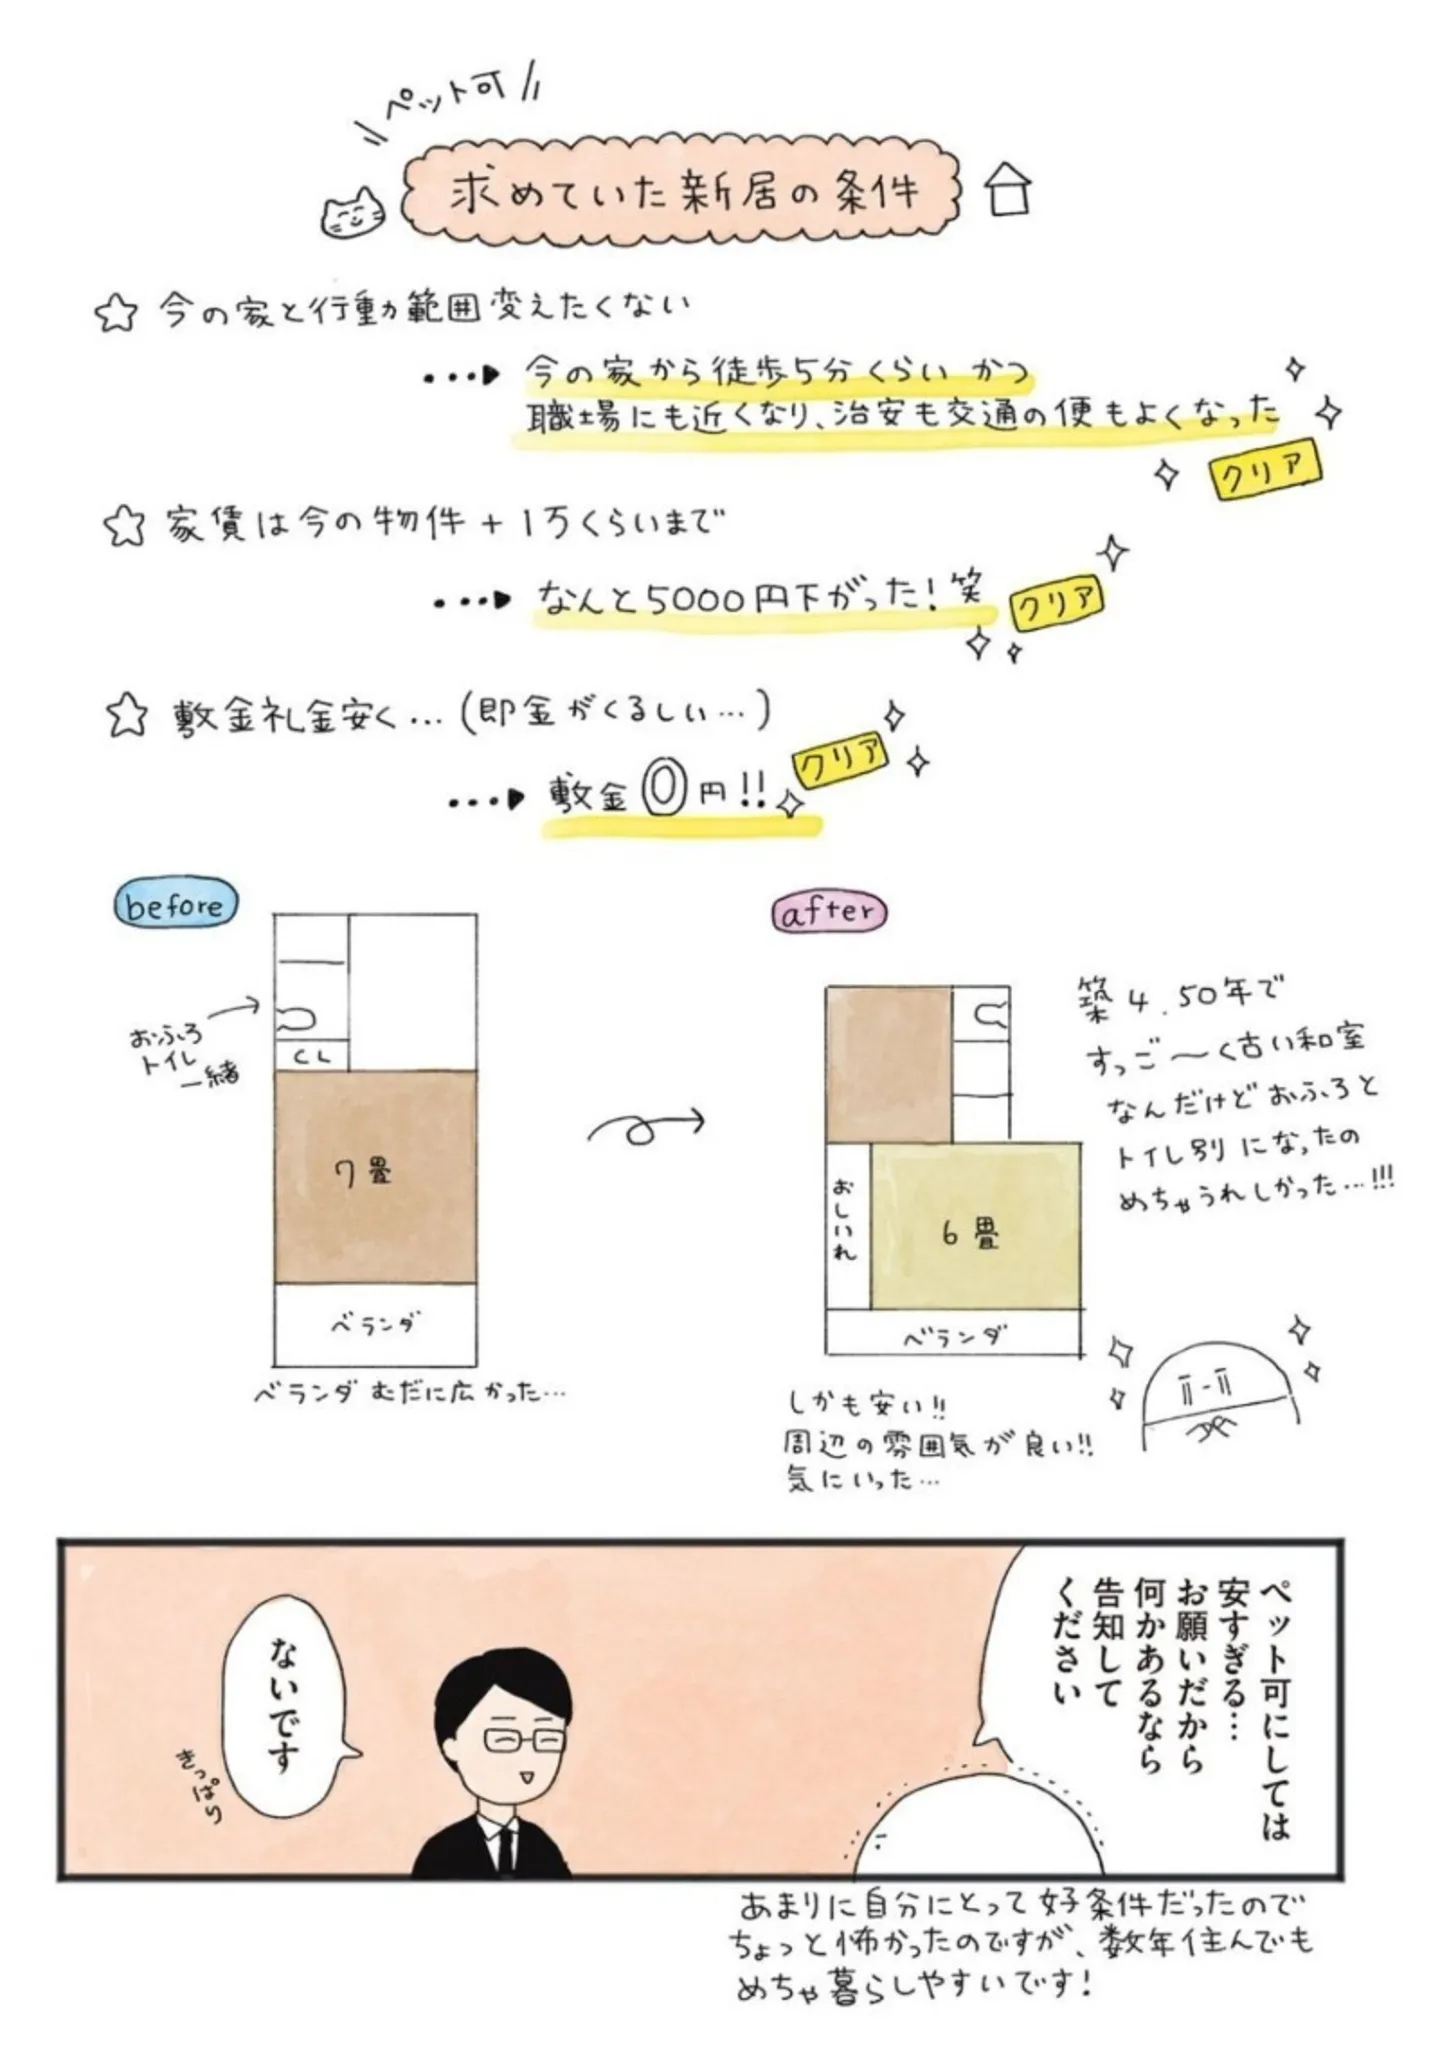 ペット可
求めていた新居の条件
☆ 今の家と行動範囲変えたくない
今の家から徒歩5分くらい かつ
職場にも近くなり、治安も交通の便もよくなった
クリア
☆ 家賃は今の物件+1万くらいまで
なんと5000円下がった!笑
クリア
☆ 敷金礼金安く…(即金がくるしい…)
敷金0円!!
クリア
before
おふろ
トイレ
一緒
CL
7畳
ベランダ
ベランダ むだに広かった…
after
おしいれ
6畳
ベランダ
築4.50年で
すっご〜く古い和室
なんだけどおふろと
トイレ別になったの
めちゃうれしかった…!!!
しかも安い!!
周辺の雰囲気が良い!!
気にいった…
ペット可にしては
安すぎる…
お願いだから
何かあるなら
告知して
ください
ないです
きっぱり
あまりに自分にとって好条件だったので
ちょっと怖かったのですが、数年住んでも
めちゃ暮らしやすいです!